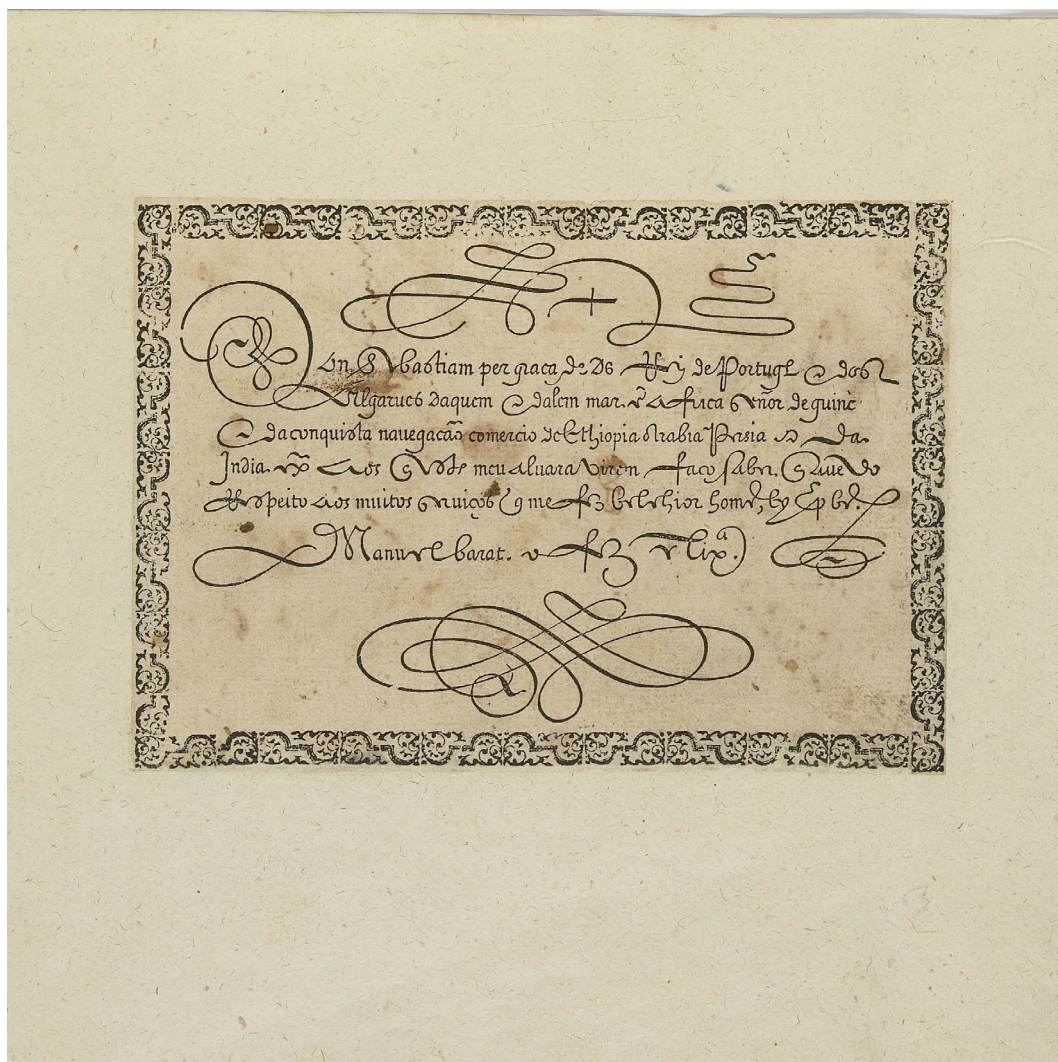 Don Sebastiam per graça de Ds Rey de Portugl e dos
Algarues daquem e dalem mar. ẽ africa señor de guine
e da conquista nauegação comercio de Ethiopia Arabia Persia e da
India. &c aos q este meu aluara viren faço saber. q auendo
Respeito aos muitos seruiços q me fez belchior homẽ,
Manuel barat. o fez e lixª.